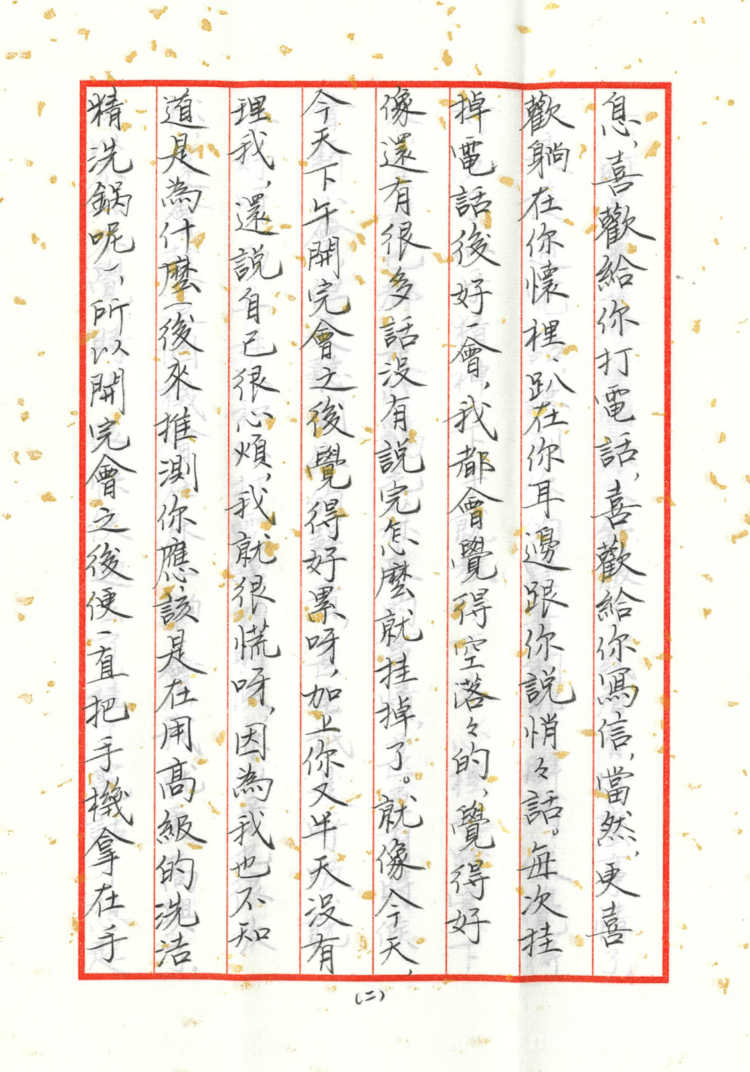 息，喜歡給你打電話，喜歡給你寫信，當然，更喜
歡躺在你懷裡、趴在你耳邊跟你說悄々話。每次挂
掉電話後好一會，我都會覺得空落々的，覺得好
像還有很多話沒有說完怎麼就挂掉了。就像今天，
今天下午開完會之後覺得好累呀，加上你又半天沒有
理我，還說自己很心煩，我就很慌呀，因為我也不知
道是為什麼（後來推測你應該是在用高級的洗洁
精洗鍋呢），所以開完會之後便一直把手機拿在手
（二）